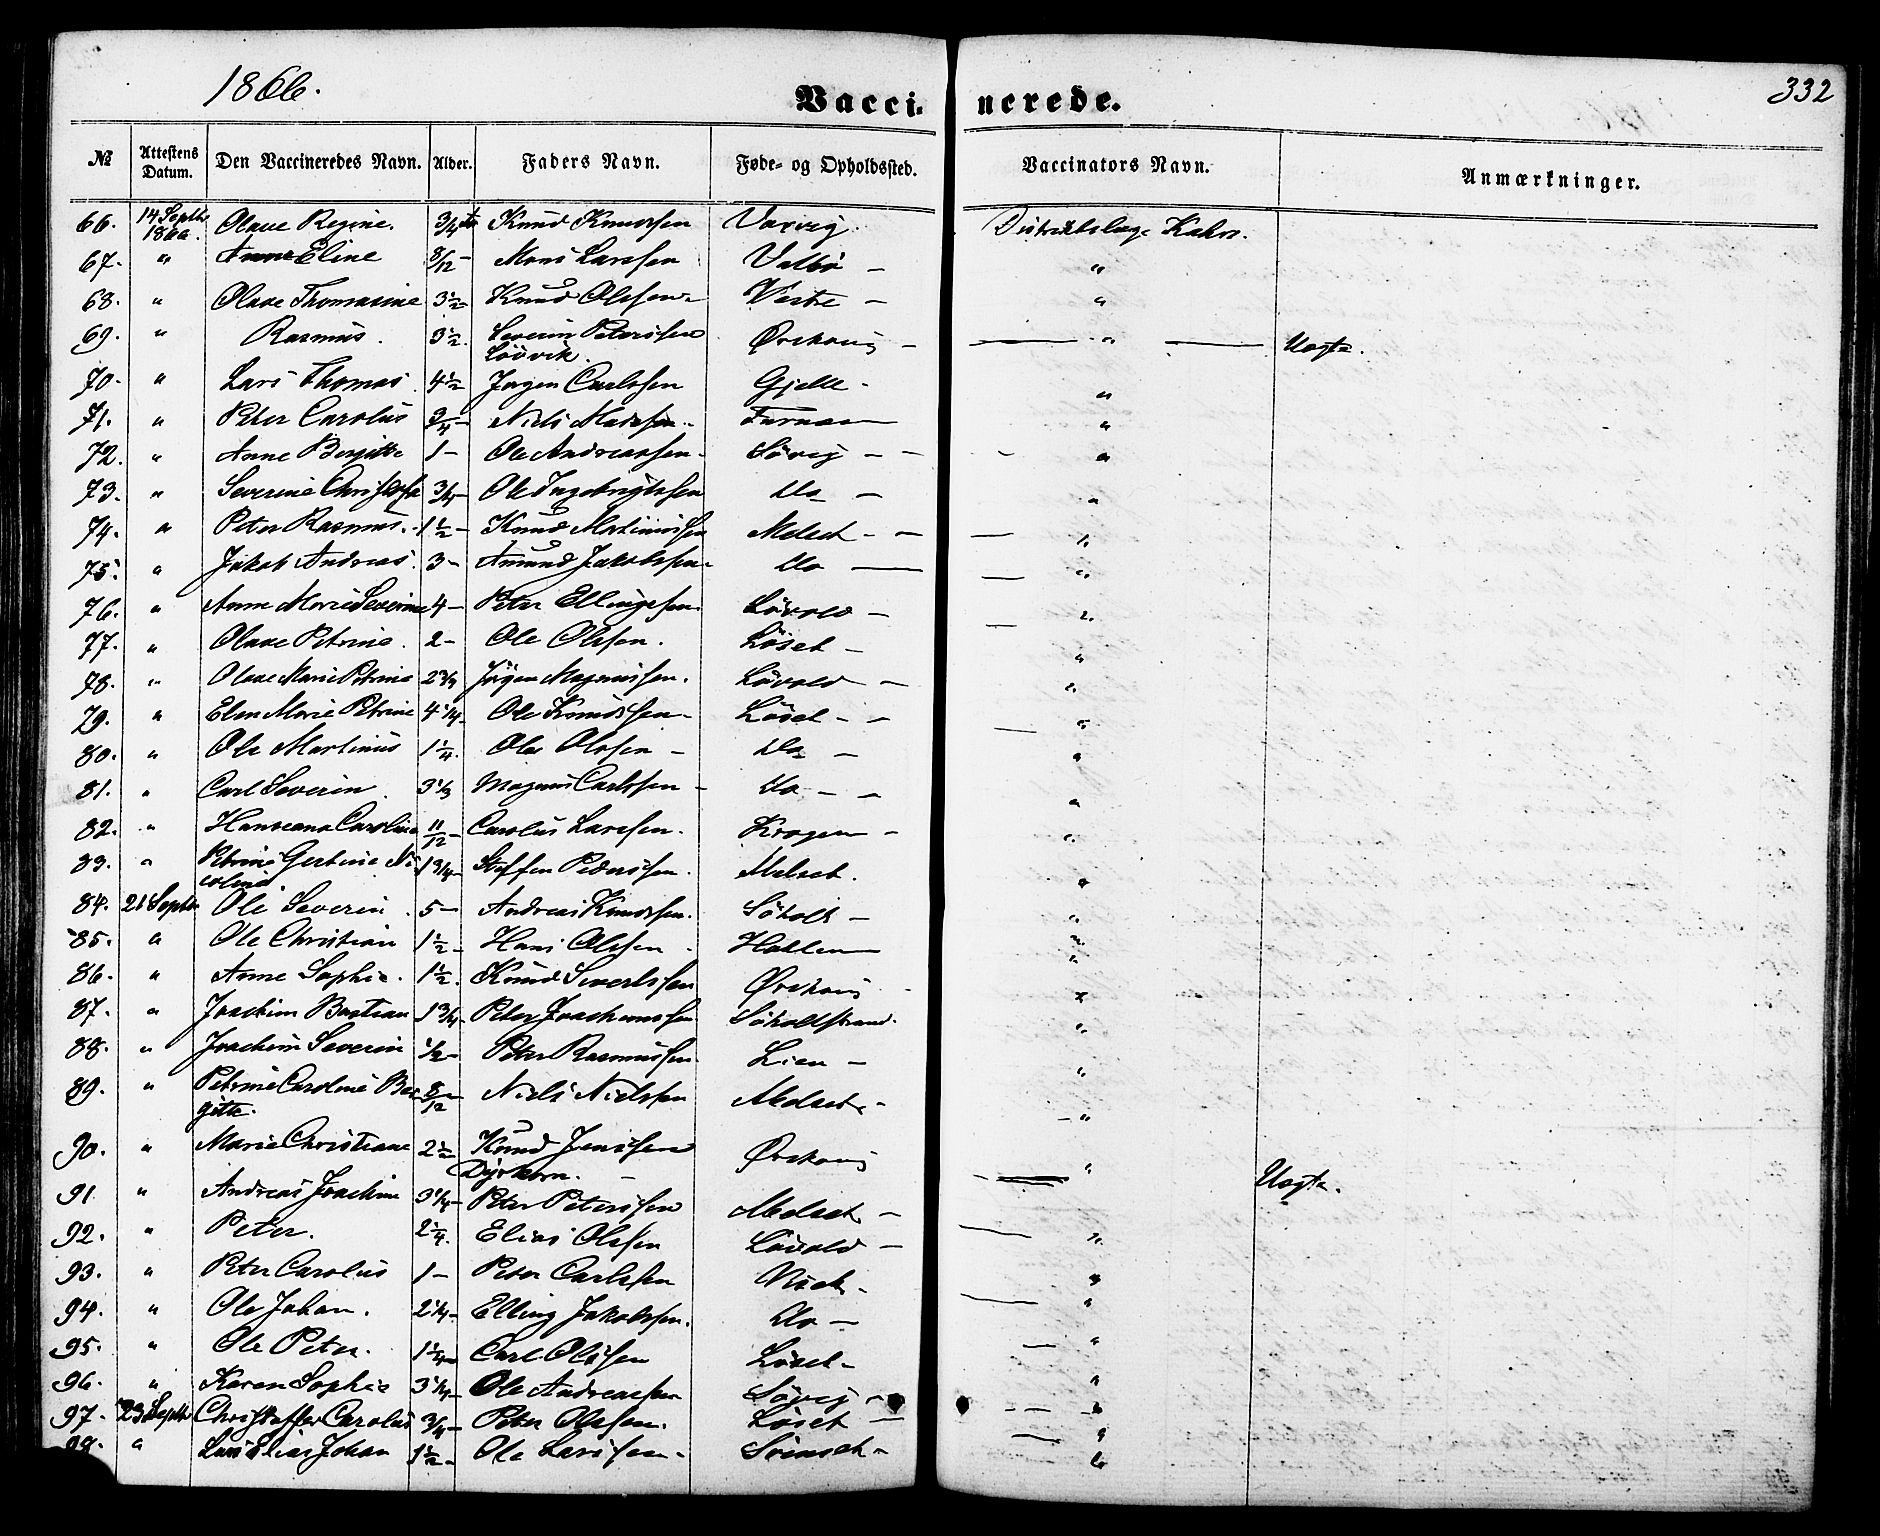 1866.
Vaccinerede.
332
№ Attestens Datum. Den Vaccineredes Navn. Alder. Faders Navn. Føde- og Opholdssted. Vaccinators Navn. Anmærkninger.
66. 14 Septbr 1866. Olave Regine. 3/4 Knud Knudsen Vaxvig. Distriktslæge Kahrs.
67. " Anne Eline 8/12 Mons Larssen Valbø — "
68. " Olave Thomasine 3 1/2 Knud Olssen Vestre — "
69. " Rasmus. 3 1/2. Severin Peterssen Løvvik. Ørskoug — " — Uægte.
70. " Lars Thomas. 4 1/2 Jørgen Carlssen Gjelle - "
71. " Peter Carolus 3/4 — Niels Madssen. Furnæs "
72. " Anne Bergitte 1 — Ole Andreassen - Søvig — — "
73. " Severine 3/4 — Ole Ingebrigtssen Do — "
74. " Peter Rasmus. 1 1/2 — Knud Martinussen Melset - — "
75. " Jakob Andreas. 3 — Amund Jakobssen - Do — "
76. " Anne Marie Severine 4 — Peter Ellingssen. Løvold — "
77. " Olave Petrine. 2 — Ole Olssen. Løset — "
78. " Olave Marie Petrine 2 3/4 Jörgen Magnussen. Løvold — "
79. " Elen Marie Petrine 4 1/4 - Ole Knudssen - Løset - — "
80. " Ole Martinus 1 1/4. Ole Olssen — Do — "
81. " Carl Severin. 3 1/3 Magnus Carlssen — Do - — "
82. " Hanseana Caroline 11/12 — Carolus Larssen. Kragen — "
83. " Petrine Gertine Nicoline. 1 3/4 — Steffen Pederssen. Melset. "
84. 21 Septbr Ole Severin. 5 — Andreas Knudssen. Søholt — "
85. " Ole Christian 1 1/2 — Hans Olssen - "
86. " Anne Sophie. 1 1/2. Knud Sivertssen Ørskoug "
87. " Joachim Bastian 1 3/4 Peter Joachimssen Søholtstrand. "
88. " Joachim Severin 1/2 — Peter Rasmussen. Lien — "
89. " Petrine Caroline Bergitte. 8/12 — Niels Nielssen Melset - — "
90. " Marie Christiane 2 1/2 Knud Jenssen Dyrkorn. — Ørskoug — " Uægte.
91. " Andreas Joachim 3 1/4 — Peter Peterssen Melset — "
92. " Peter. 2 1/4. Elias Olssen Løvold — "
93. " Peter Carolus 1 — Peter Carlssen "
94. " Ole Johan. 2 1/4 — Elling Jakobssen. Do — "
95. " Ole Peter. 1 1/4 — Carl Olssen Løset - "
96. " Karen Sophie 3 1/4 — Ole Andreassen Søvig — "
97. 23 Septbr Christoffer Carolus 3/4 — Peter Olssen. Løset — "
98. " Lars Elias Johan 1 1/2 — Ole Larssen - "